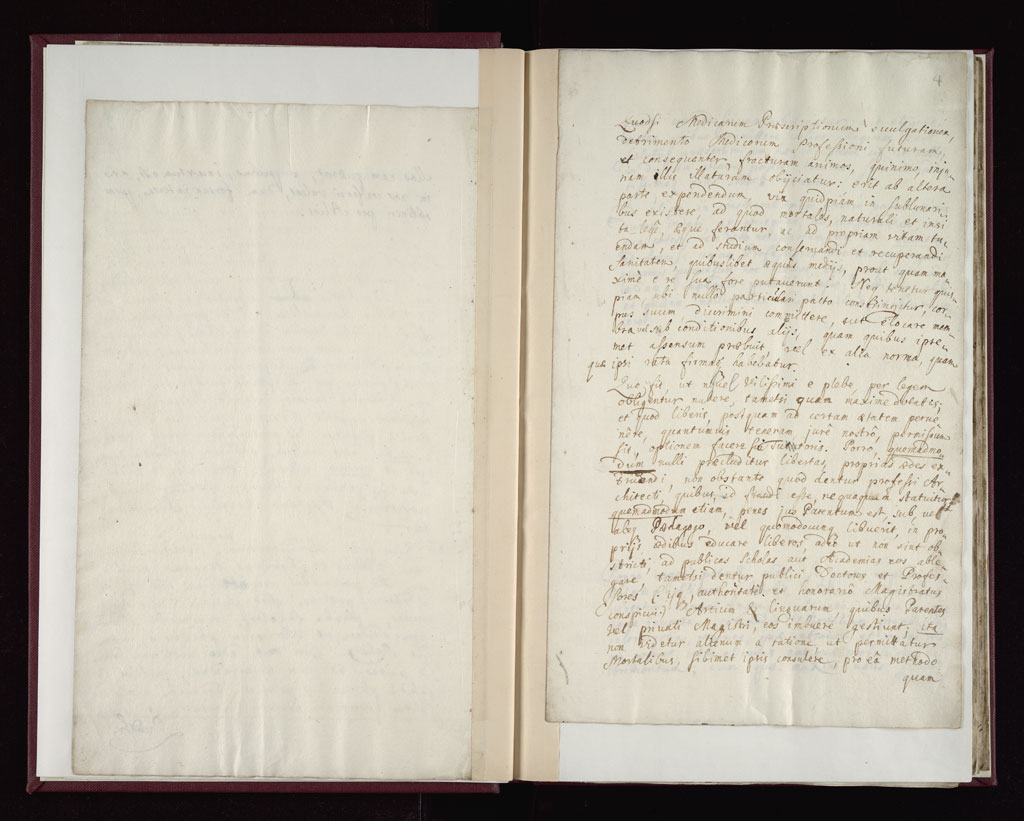 4
Quodsi Medicarum Præscriptionum evulgationem,
detrimento Medicorum Professioni futuram,
et consequenter fracturam animos, quinimo, inju-
riam illis illaturam obijciatur: erit ab altera
parte expendendum, quidpiam in sublunari-
bus existere, ad quod mortales, naturali et insi
ta lege, æque ferantur, ac ad propriam vitam tu-
endam, et ad studium conservandi et recuperandi
Sanitatem, quibuslibet æquis medijs, prout quam ma-
xime e re sua fore putaverunt. Neq tenetur quis-
piam ubi nullo particulari pacto constringitur, cor-
pus suum discrimini committere, aut elocare mem
bra sub conditionibus alijs, quam quibus ipse-
met assensum præbuit, vel ex alia norma, quam
quæ ipsi rata firmaq habebatur.
Quo fit, ut nè vel vilissimi e plebe, per legem
obligentur nubere, tametsi quam maxime dotatis;
et quod liberis, postquam ad certam ætatem perve
nêre, quantumvis teneram jurê nostrô, permissum
sit, optionem facere sui tutoris. Porro, quemadmo
dum nulli præcluditur libertas, proprias ædes ex
truendi, non obstante quod dentur professi Ar-
chitecti, quibus id fraudi esse, nequaquam statuitur
quemadmodum etiam, penes jus Parentum est, sub vel
absq Pædagogo, vel quomodocunq libuerit, in pro-
prijs ædibus educare liberos, adeò ut non sint ob-
stricti, ad publicas Scholas aut Academias eos able-
gare, tametsi dentur publici Doctores et Profes-
sores (ijq authoritate et honorariô Magistratus
conspicui) Artium & linguarum, quibus Parentes
vel privati Magistri, eos imbuere gestiunt; ita
non videtur alienum a ratione ut permittatur
Mortalibus, sibimet ipsis consulere, pro eâ methodo
quam